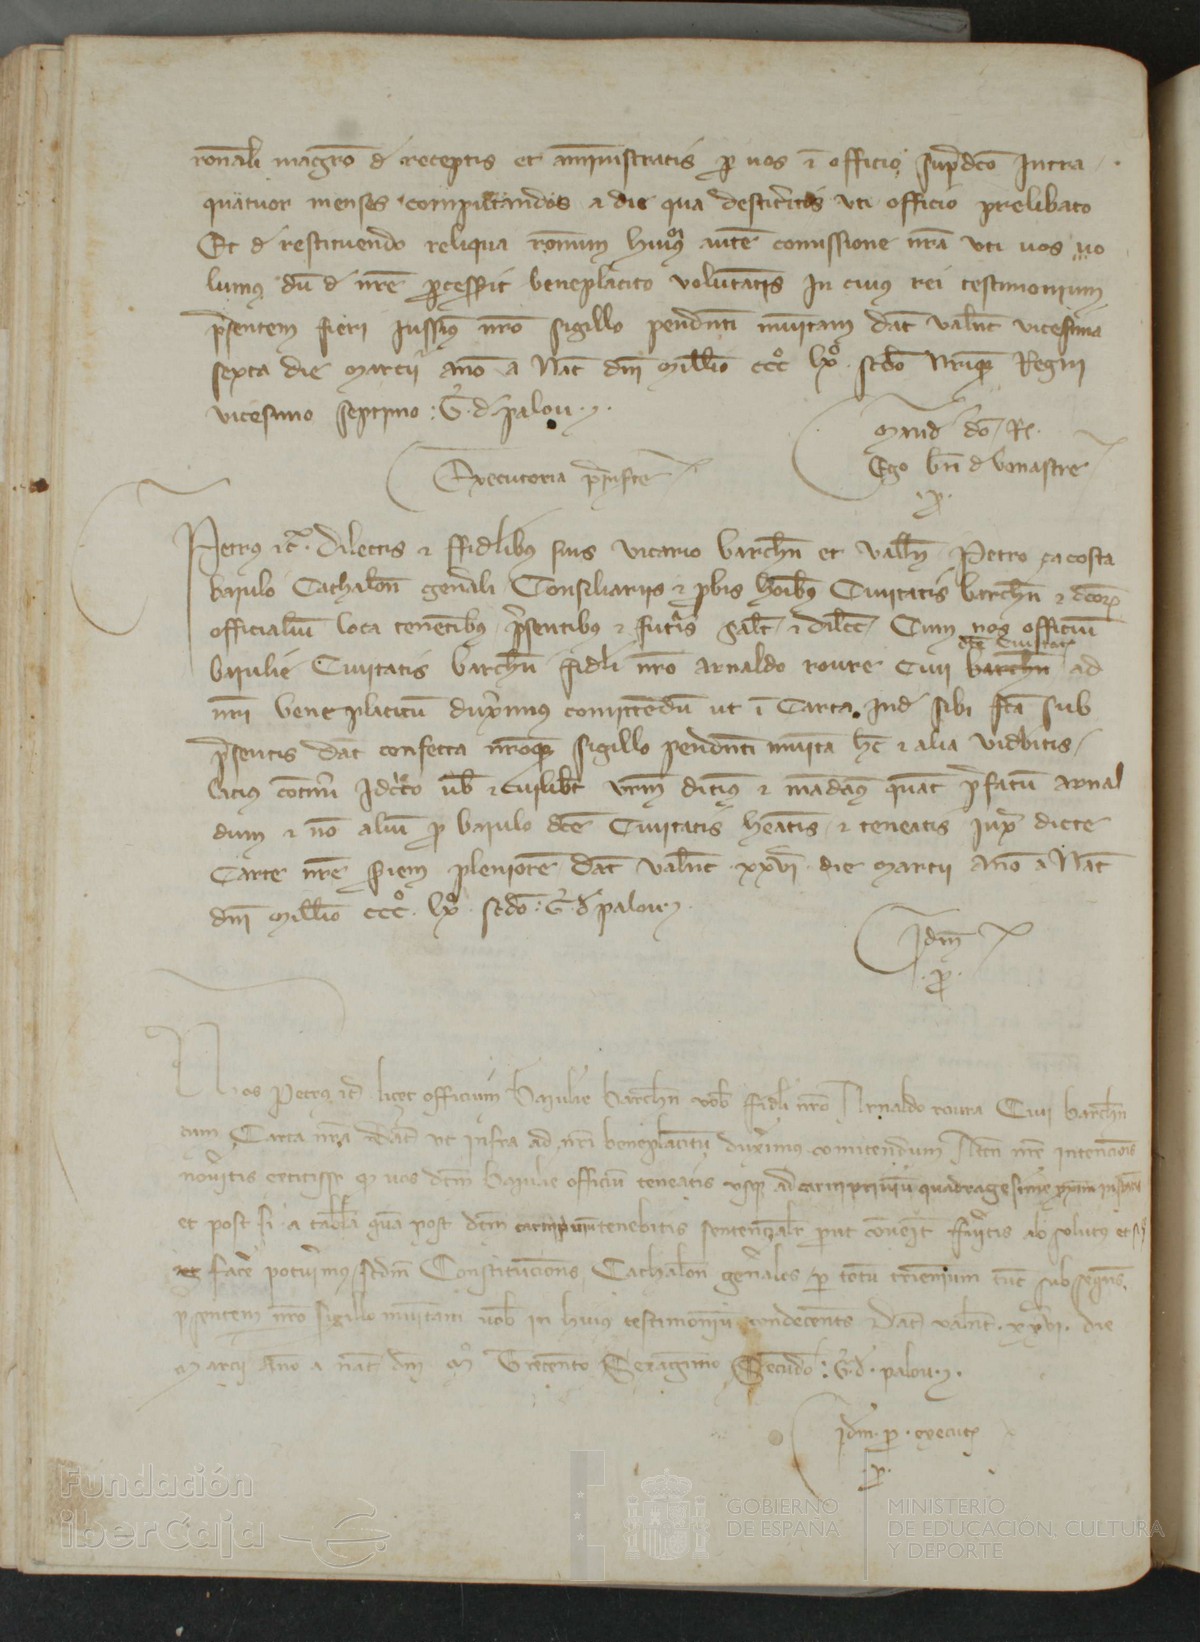 ronali magro d receptis et aministratis p vos i officio supradco intra
quatuor menses compu[tandos a die qua destiteritis uti officio prelibato
Et d restituendo reliqua ronum huiusq aute comissione nra uti vos vo
lumus du d nre pcesserit beneplacito voluntatis In cuius rei testimonium
psentem fieri iussimus nro sigillo pendenti munitam dat Valnt vicesima
sexta die marcii Ano a Nat dni Millio ccco lxo scdo nrique Regni
vicesimo septimo : G. d palou.
Mand do Re.
Ego bn d bonastre
.p.
Executoria pmisse
Petrus etc. Dilectis et ffidlibus suis vicario barchn et Valln Petro ça costa
baiulo Cathalon genali Consiliariis et pbis hoibus Civitatis barchn et dcor
officialiu loca tenetibus psentibus et futuris Salt et dilcc Cum nos officiu
dce Civitatis
baiulie Civitatis barchn fidli nro Arnaldo roure Civi barchn ad
nri bene placitu duximus comittedu ut i Carta inde sibi fca sub
psentis dat confecta nroque sigillo pendenti munita hec et alia videbitis
lacius cotineri Idcirco vob et cuilibet vrm dicimus et madamus quat pfatu Arnal
dum et no aliu p baiulo dce Civitatis heatis et teneatis iuxta dicte
Carte nre seriem pleniore dat Valnt xxvi die marcii Ano a Nat
dni Millio ccco. lxo scdo : G. d palou
Idm
.p.
Nos Petrus etc licet officium baiulie barchn vob ffidli nro Arnaldo roura Civi barchn
cum Carta nra dat ut infra ad nri beneplacitu duximus comitendum Atn nre intencionis
noveritis extitisse q vos dcm baiulie officiu teneatis usque ad carniprivium quadragesime
et post si a tabla qua post dcm carnipriu tenebitis sentencialr put coveit ffueritis absolutus et
facere poterimus scdm Constituciones Cathalon generales p totu trienium tuc subsequens
psentem nro sigillo munitam vob in huius testimoniu condecents Dat Valnt xxvi. die
Marcii Ano a nat dni Mo Trecento Sexagesimo Secudo : G. d. palou.
Idm. p. execut
.p.
Fundación
iberCaja
GOBIERNO
DE ESPAÑA
MINISTERIO
DE EDUCACIÓN, CULTURA
Y DEPORTE